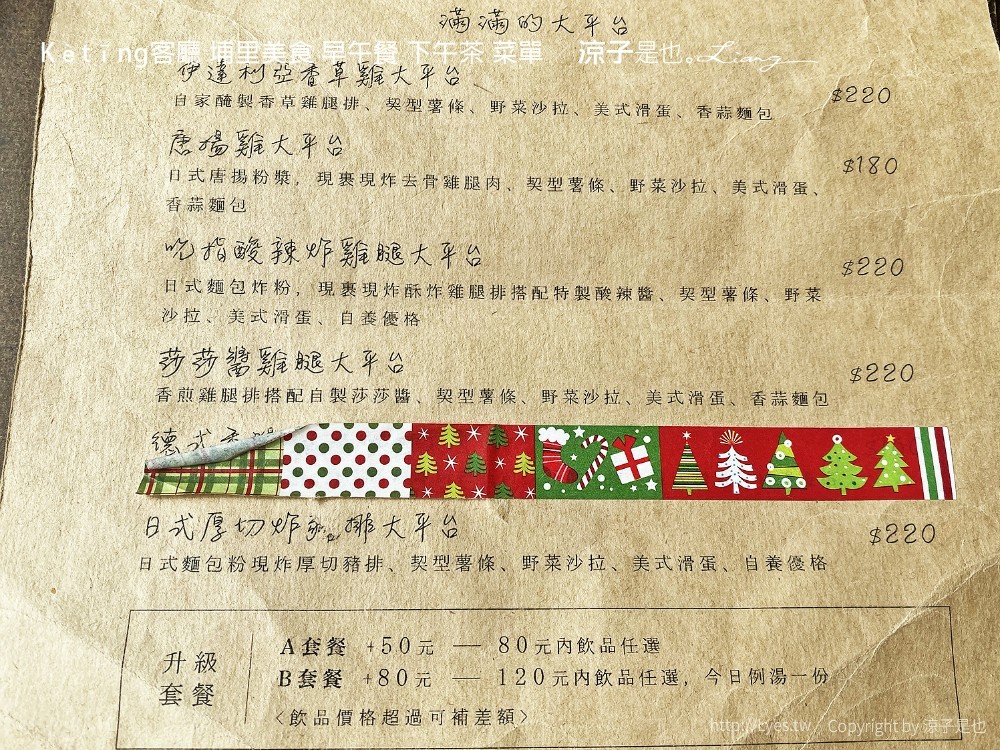 滿滿的大平台
Keting客廳 埔里美食 早午餐 下午茶 菜單 涼子是也。Liang
伊達利亞香草雞大平台 $220
自家醃製香草雞腿排、契型薯條、野菜沙拉、美式滑蛋、香蒜麵包
唐揚雞大平台 $180
日式唐揚粉漿，現裹現炸去骨雞腿肉、契型薯條、野菜沙拉、美式滑蛋、
香蒜麵包
吮指酸辣炸雞腿大平台 $220
日式麵包炸粉，現裹現炸酥炸雞腿排搭配特製酸辣醬、契型薯條、野菜
沙拉、美式滑蛋、自養優格
莎莎醬雞腿大平台 $220
香煎雞腿排搭配自製莎莎醬、契型薯條、野菜沙拉、美式滑蛋、香蒜麵包
德式香
日式厚切炸豬排大平台 $220
日式麵包粉現炸厚切豬排、契型薯條、野菜沙拉、美式滑蛋、自養優格
升級
套餐
A套餐 +50元 — 80元內飲品任選
B套餐 +80元 — 120元內飲品任選，今日例湯一份
<飲品價格超過可補差額>
http://cyes.tw/ Copyright by 涼子是也